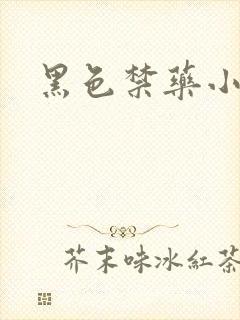 黑色禁藥小
芥末味冰紅茶